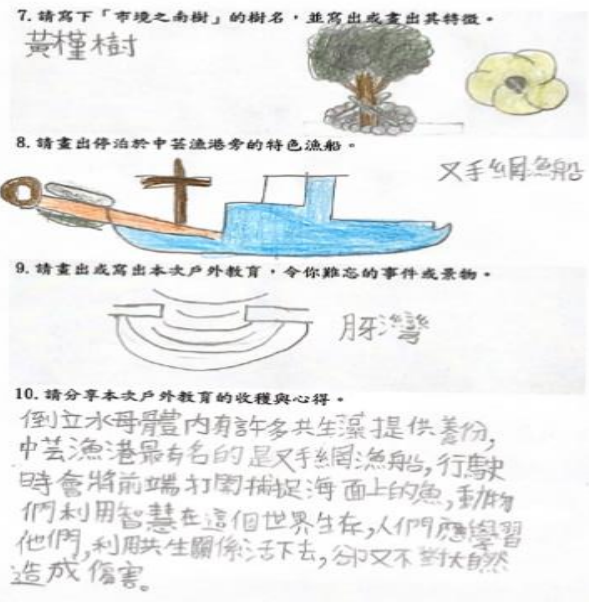 7. 請寫下「市境之南樹」的樹名，並寫出或畫出其特徵。
黃槿樹
8. 請畫出停泊於中芸漁港旁的特色漁船。
叉手網漁船
9. 請畫出或寫出本次戶外教育，令你難忘的事件或景物。
月牙灣
10. 請分享本次戶外教育的收穫與心得。
倒立水母體內有許多共生藻提供養份,
中芸漁港最有名的是叉手網漁船,行駛
時會將前端打開捕捉海面上的魚,動物
們利用智慧在這個世界生存,人們應學習
他們,利用共生關係活下去,卻又不對大自然
造成傷害。